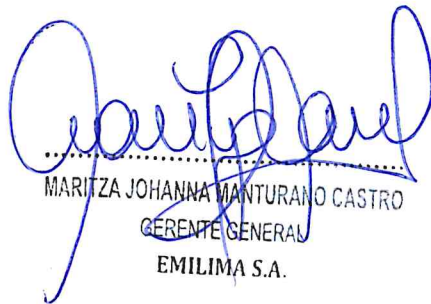 MARITZA JOHANNA MANTURANO CASTRO
GERENTE GENERAL
EMILIMA S.A.